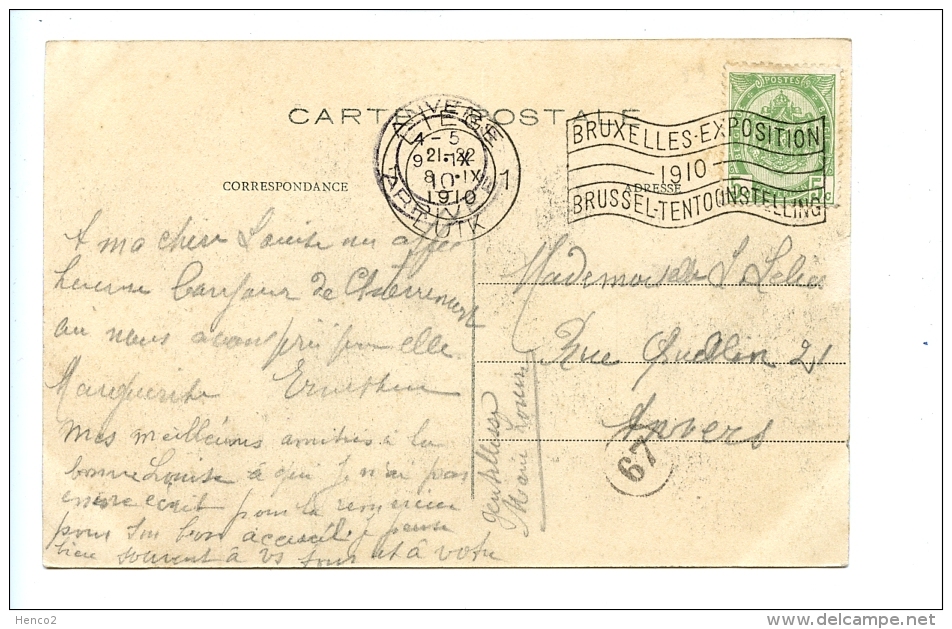 CARTE POSTALE
POSTES
ANVERS
LIEGE
4-5
21-22
9 IX
8 IX
10
1910
1
ARRIVEE
LUIK
BRUXELLES-EXPOSITION
1910
BRUSSEL-TENTOONSTELLING
5 c
CORRESPONDANCE
ADRESSE
A ma chère Louise un
de
au nous avons pour elle
Marguerite
Mes meilleures amitiés à la
bonne Louise à qui je n'ai pas
encore écrit pour la remercier
pour son bon accueil. Je pense
bien souvent à vs tous et à votre
Marie Louise
Mademoiselle L
Rue Quellin 21
Anvers
67
Henco2
www.delcampe.net